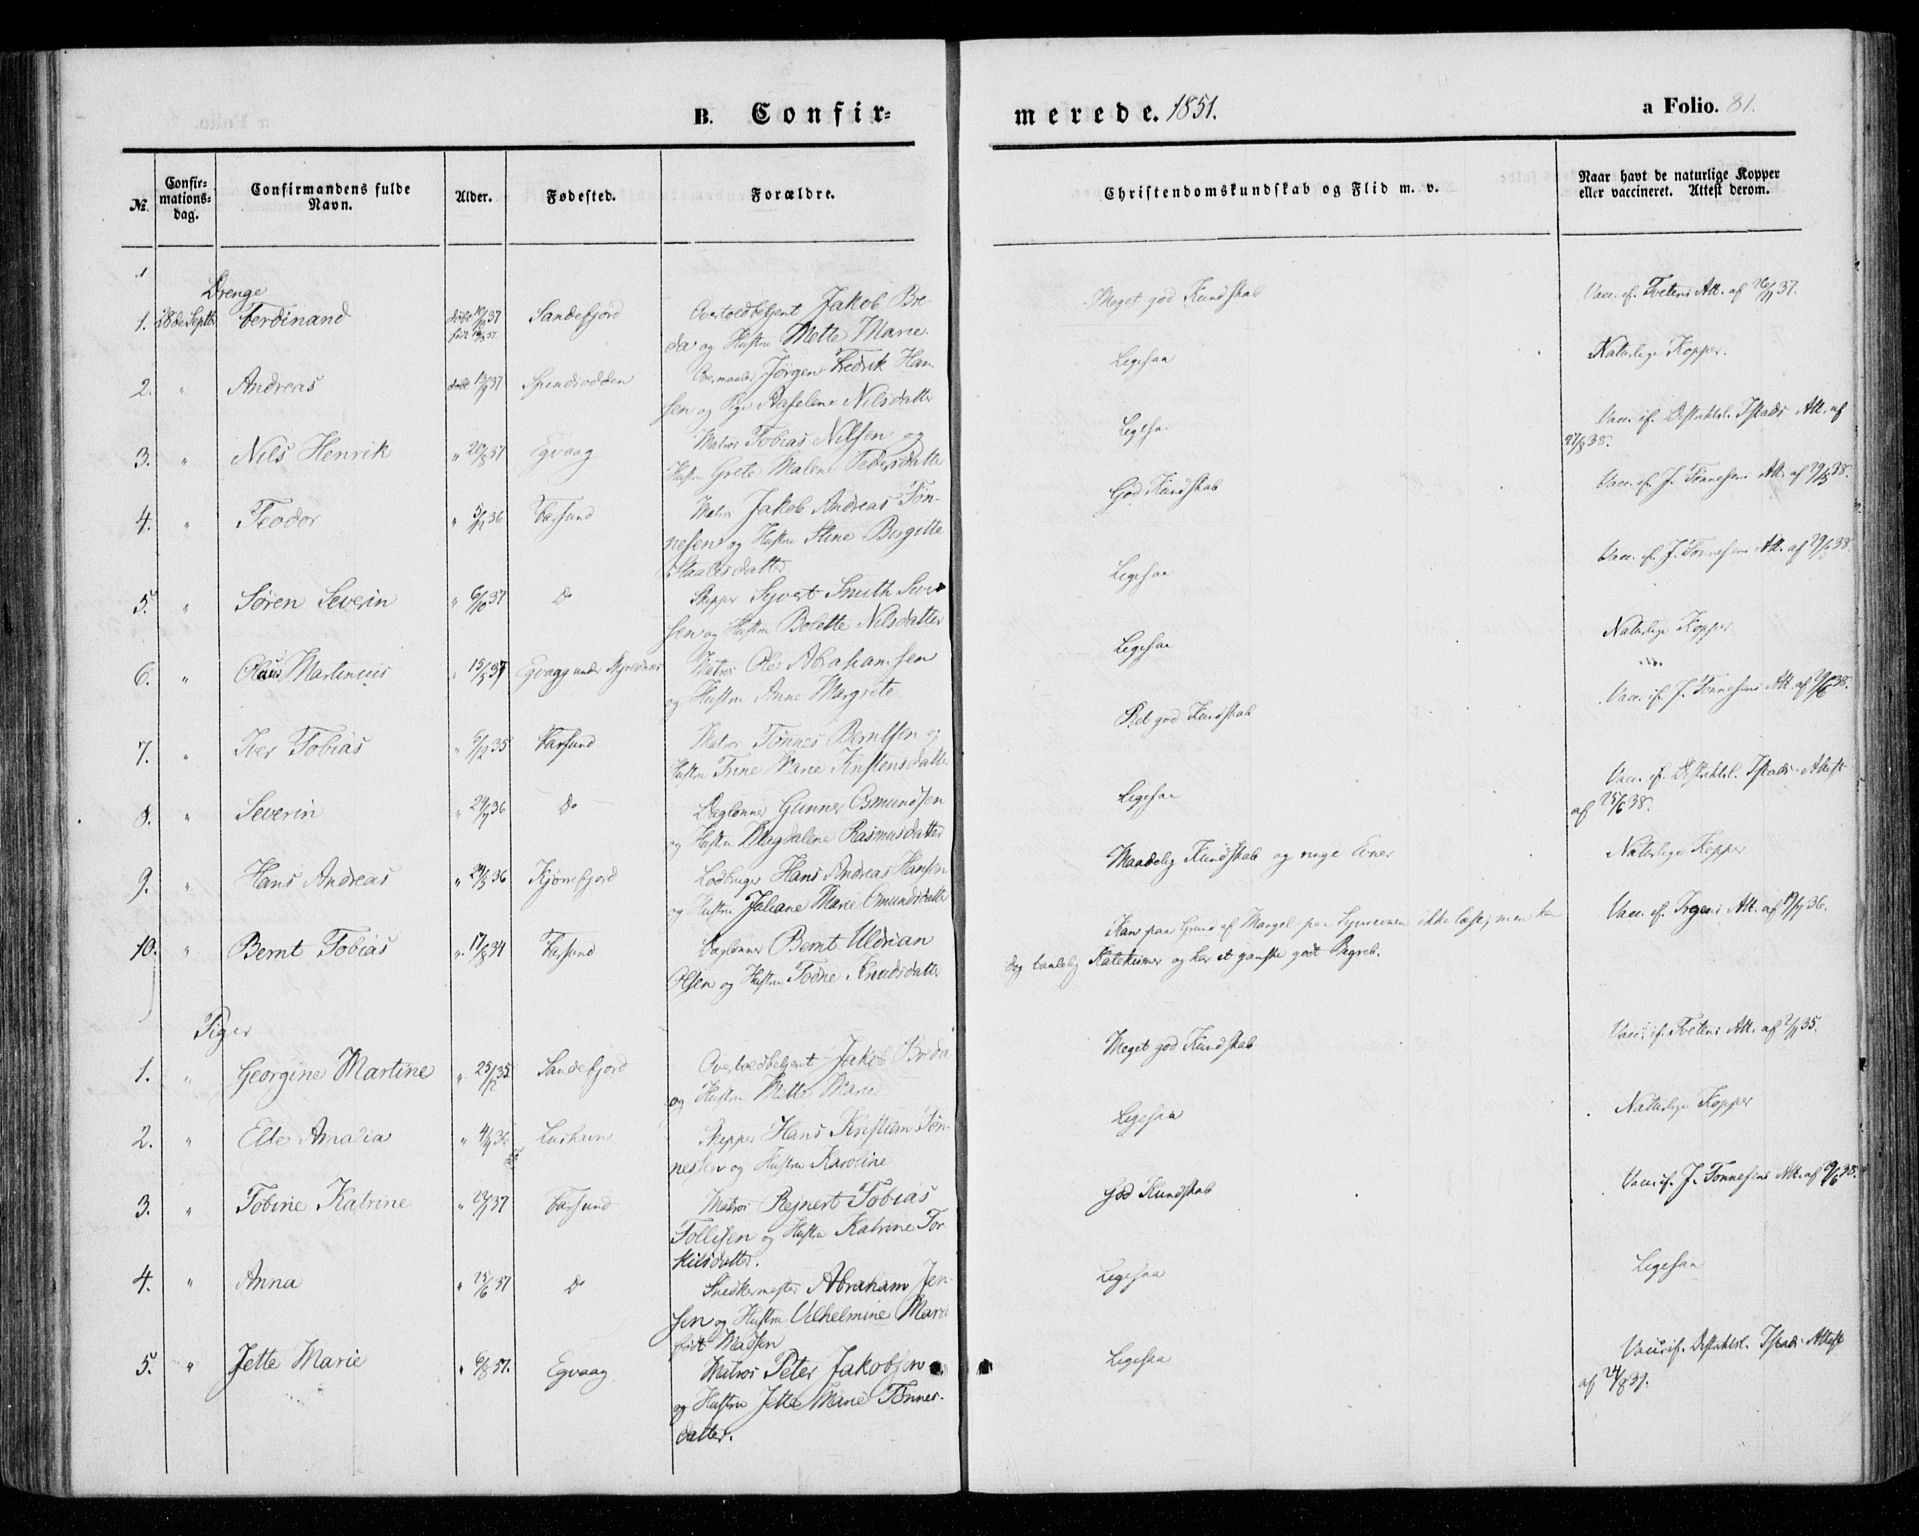 B. Confir-
merede. 1851.
a Folio. 81.
№.
Confir-
mations-
dag.
Confirmandens fulde
Navn.
Alder.
Fødested.
Forældre.
Christendomskundskab og Flid m. v.
Naar havt de naturlige Kopper
eller vaccineret. Attest derom.
Drenge
1. 28de Septbr Ferdinand Sandefjord Overtoldbetjent Jakob Bre
da og Hustru Mette Marie
Meget god Kundskab
Vacc. if. Tvetens Att. af 37.
2. " Andreas Spindsodden Jörgen Fredrik Han
sen og Pige Aaselene Nilsdatter
Ligesaa
Naturlige Kopper.
3. " Nils Henrik " Egvaag Matros Tobias Nilsen og
Hustru Grete Malene Pedersdatter
Ligesaa
Vacc. if. Att. af
27/8 38.
4. " Teodor " Farsund Matros Jakob Andreas Tön-
nesen og Hustru Stine Birgitte
Staalesdatter
God Kundskab
Vacc. if. J. Tönnesens Att. af 38.
5. " Sören Severin " 6/10 37 Do Skipper Syvert Smith Siver
sen og Hustru Bolette Nilsdatter
Ligesaa
Vacc. if. J. Tönnesens Att. af 38.
6. " Olaus Martinius " Egvaag under Matros Ole Abrahamsen
og Hustru Anne Margrete
Ligesaa
Naturlige Kopper
7. " Iver Tobias " 35 Farsund Matros Tönnes Berntsen og
Hustru Trine Marie Kristensdatter
Ret god Kundskab
Vacc. if. J. Tönnesens Att. af 38.
8. " Severin " 36 Do Daglönner Gunner Osmundsen
og Hustru Magdalene Rasmusdatter
Ligesaa
Vacc. if. Attest
af 25/6 38.
9. " Hans Andreas " 36 Hans Andreas Hansen
og Hustru Juliane Marie Omundsdatter
Maadelig Kundskab og ringe Evner
Naturlige Kopper
10. " Bernt Tobias " 17/8 34 Farsund Daglönner Bernt Uldrian
Olsen og Hustru Todne Knudsdatter
Kan paa Grund af Mangel paa Synsevnen ikke læse, men kan
dog Katekismen og har et ganske godt Begreb.
Vacc. if. Att. af 36.
Piger
1. " Georgine Martine " 25/12 35 Sandefjord Overtoldbetjent Jakob Breda
og Hustru Mette Marie
Meget god Kundskab
Vacc. if. Tvetens Att. af 35.
2. " Elle Amalia " 36 Skipper Hans Kristian Tön-
nessen og Hustru Karoline
Ligesaa
Naturlige Kopper
3. " Tobine Katrine " 37 Farsund Matros Rejnert Tobias
Tollisen og Hustru Katrine Tor
kilsdatter.
God Kundskab
Vacc. if. J. Tönnesens Att. af 38.
4. " Anna " 25/6 37 Do Snedkermester Abraham Jen-
sen og Hustru Vilhelmine Marie
född Madsen
Ligesaa
Ligesaa
5. " Jette Marie " 6/8 37. Egvaag Matros Peter Jakobsen
og Hustru Jette Marie Tönnes-
datter.
Ligesaa
Vacc. if. Attest
af 37.